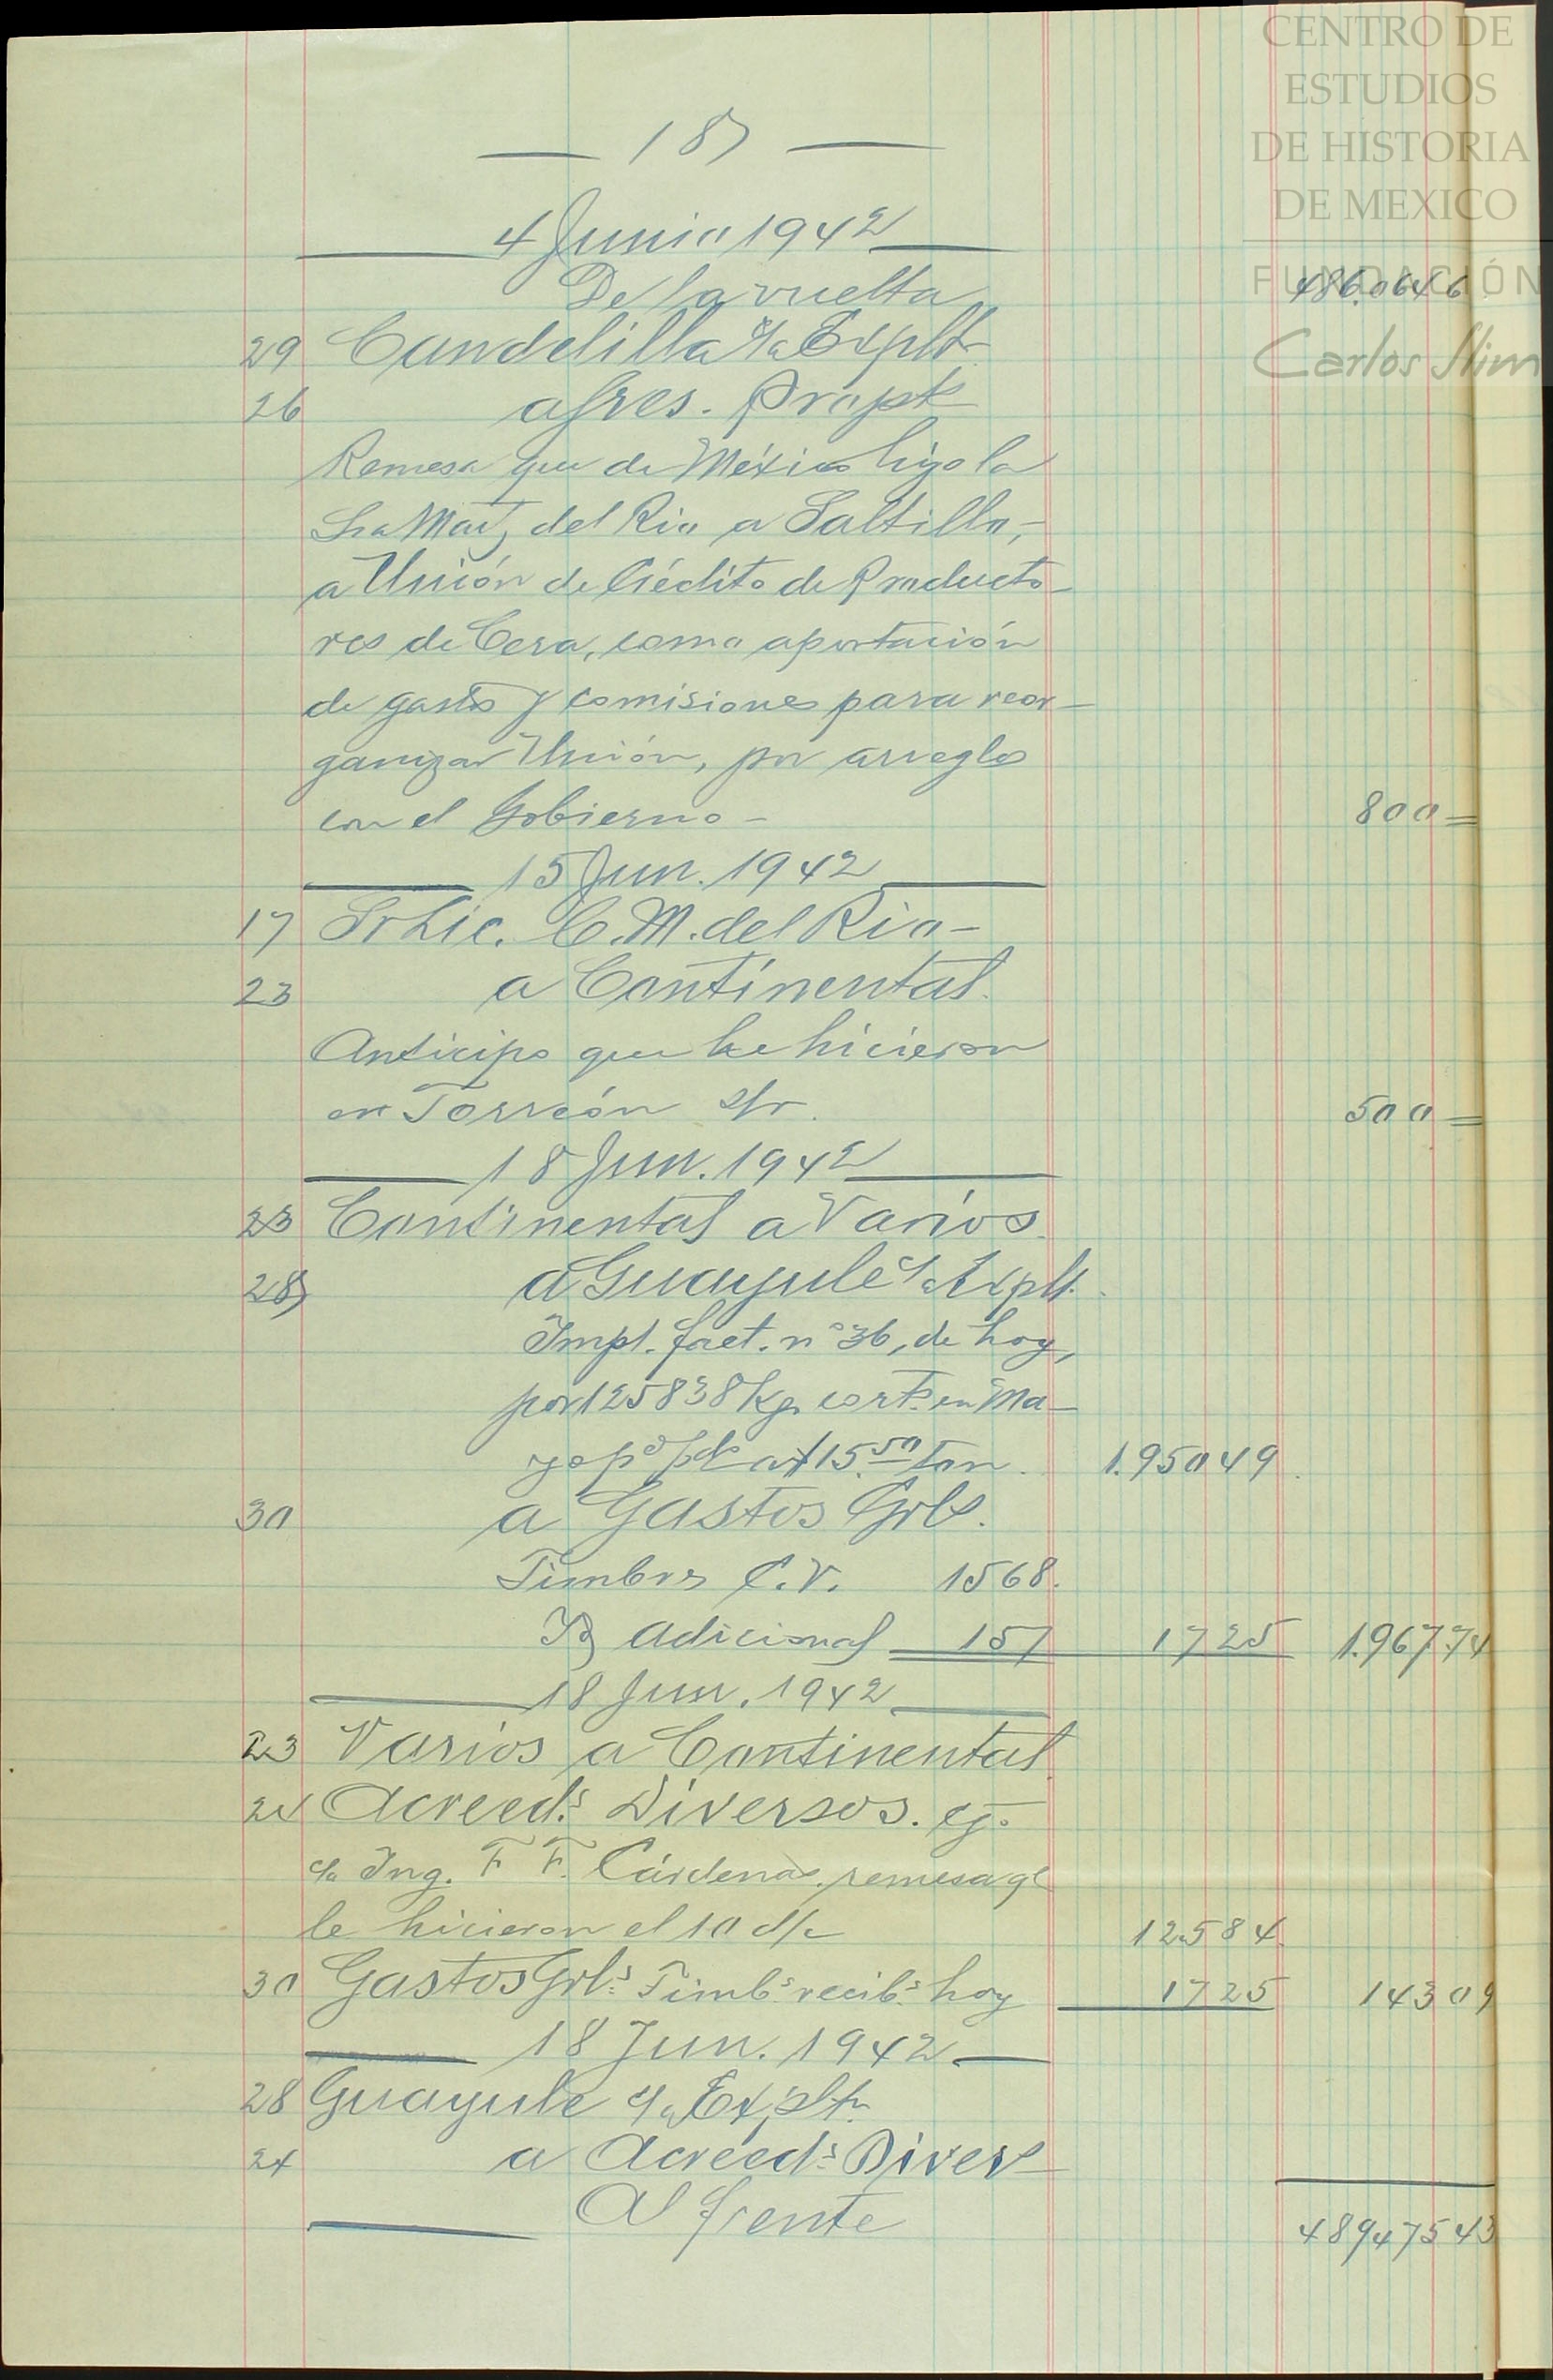 CENTRO DE
ESTUDIOS
DE HISTORIA
DE MEXICO
FUNDACIÓN
Carlos Slim
187
4 Junio 1942
De la vuelta 486,064 6
29 Candelilla c/a Explt.
26 a Sres. Propt
Remesa que de México hizo la
Sra Martz del Rio a Saltillo,
a Unión de Crédito de Producto-
res de Cera, como aportación
de gastos y comisiones para reor-
ganizar Unión, por arreglos
con el Gobierno - 800=
15 Jun. 1942
17 Sr Lic. C. M. del Rio-
23 a Continental.
Anticipo que le hicieron
en Torreón 500=
18 Jun. 1942
23 Continental a Varios.
28 a Guayule c/a Explt.
Impt. fact. nº 36, de hoy,
por 125838 Kg. cort. en Ma-
yo pº pdo a $15.50 ton. 1.950 49
30 a Gastos Grls.
Timbres C.V. 15 68.
Id adicional 1 57 17 25 1.967 74
18 Jun. 1942
23 Varios a Continental.
24 Acreeds. Diversos.
c/a Ing. F. F. Cárdenas, remesa qe
le hicieron el 10 d/c 125 84
30 Gastos Grls. Timbs. recibs. hoy 17 25 143 09
18 Jun. 1942
28 Guayule c/a Explt.
24 a Acreeds. Divers
Al frente 489475 43